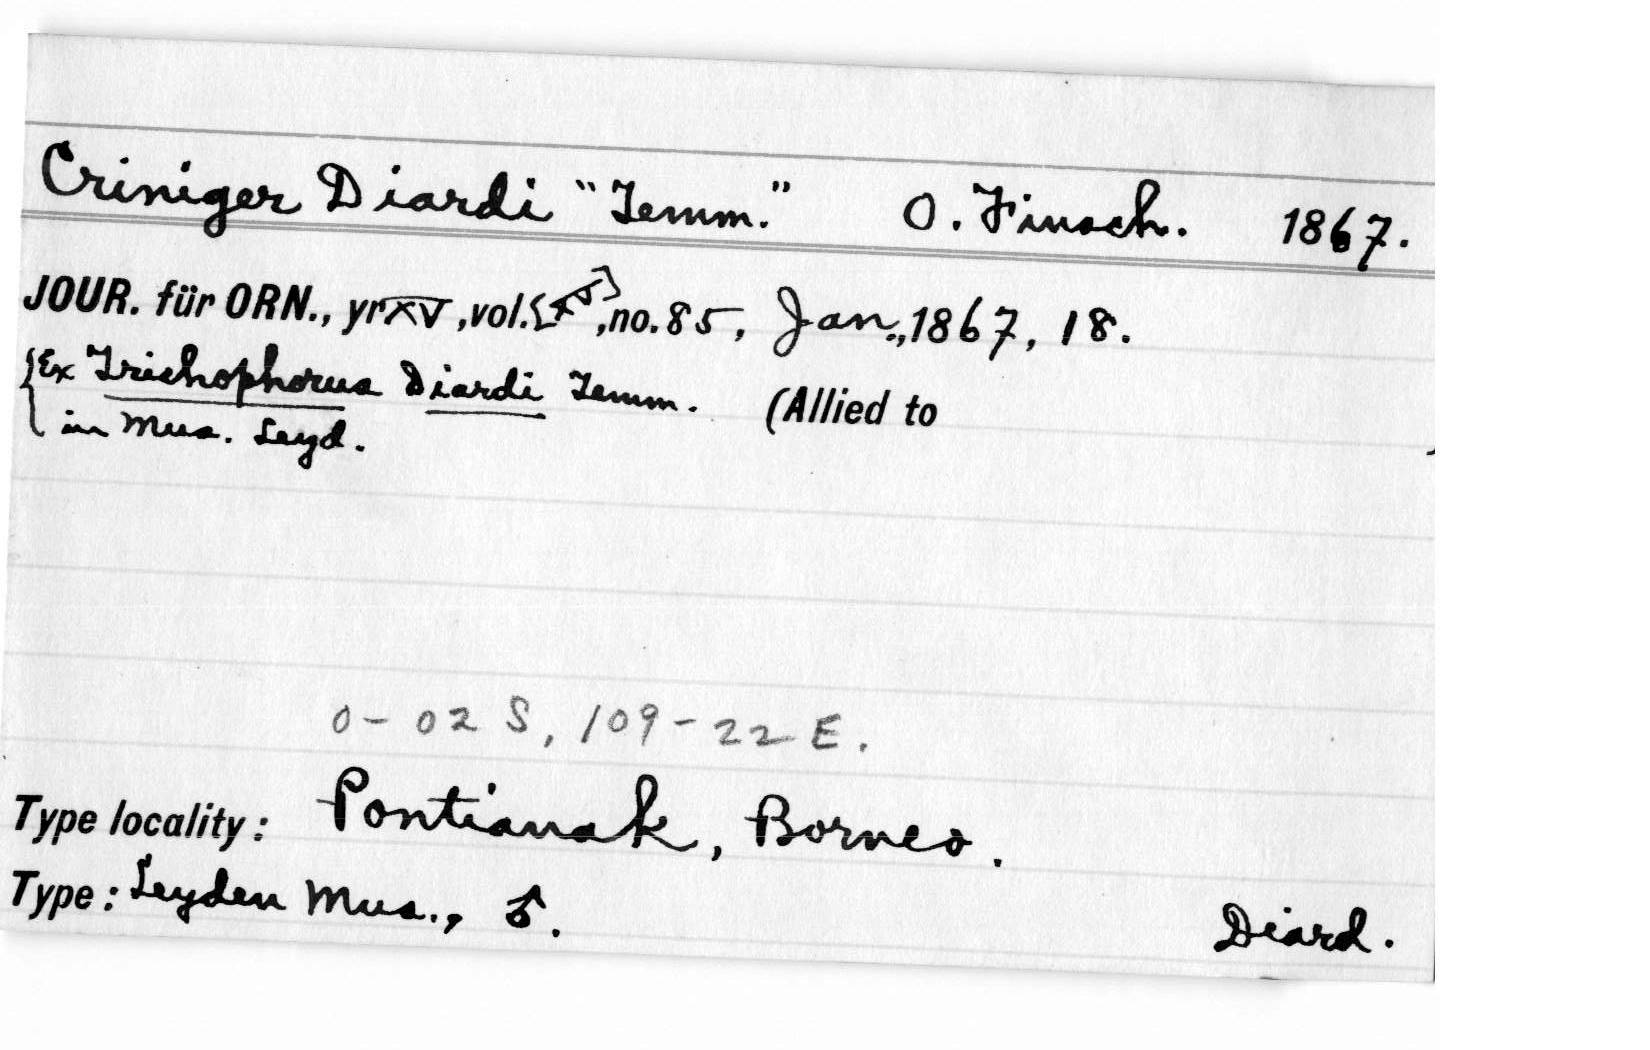 Criniger Diardi "Temm." O. Finsch. 1867.
JOUR. für ORN., yr XV, vol. [XV], no. 85, Jan., 1867, 18.
{Ex Trichophorus Diardi Temm. (Allied to
in Mus. Leyd.
0-02 S, 109-22 E.
Type locality: Pontianak, Borneo.
Type: Leyden Mus., ♂. Diard.